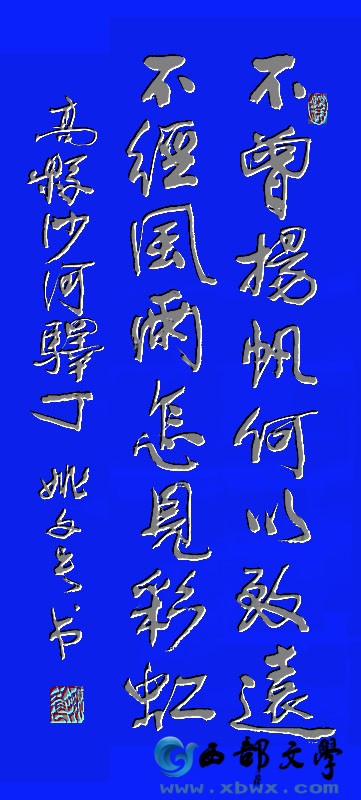 不曾揚帆何以致遠
不經風雨怎見彩虹
高縣沙河驛丁 姚文書
西部文學
www.xbwx.cn